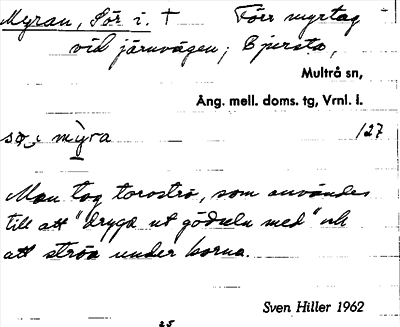 Myran, Sör i. † Förr myrtag
vid järnvägen; Bjärsta,
Multrå sn,
Ång. mell. doms. tg, Vrnl. l.
sø, i mỳra 127
Man tog torvströ, som användes
till att "dryga ut gödseln med" och
att ströa under korna.
Sven Hiller 1962
25